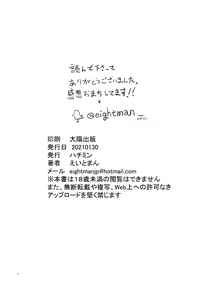 読んで下さって
ありがとうございました。
感想おまちしてます!!
@eightman
印刷 大陽出版
発行日 20210130
発行 ハチミン
著者 えいとまん
メール eightmanjp@hotmail.com
※本書は18歳未満の閲覧はできません
また、無断転載や複写、Web上への許可なき
アップロードを堅く禁じます